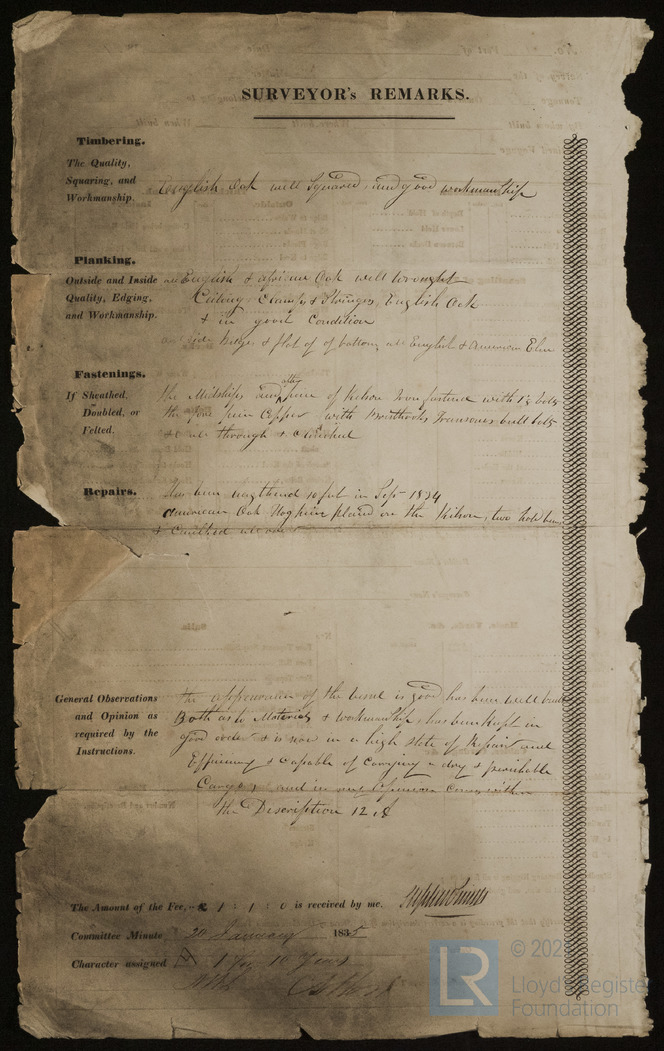 SURVEYOR's REMARKS.
Timbering.
The Quality,
Squaring, and
Workmanship.
English Oak well Squared and good workmanship
Planking.
Outside and Inside
Quality, Edging,
and Workmanship.
English & African Oak well wrought
Ceiling Clamps & Stringers, English Oak
& in good Condition
Bilges & flat of bottom English & American Elm
Fastenings.
If Sheathed,
Doubled, or
Felted.
the Midships and of Kelson Iron fastened with bolts
the Copper with Transoms bolts
through & Clenched
Repairs.
Has been lengthened 10 feet in Sept 1834
American Oak placed on the Kelson, two hold
& Caulked
General Observations
and Opinion as
required by the
Instructions.
the appearance of the Vessel is good has been well built
Both as to Materials & workmanship, has been kept in
good order & is now in a high state of Repair and
Efficiency & capable of carrying a dry & perishable
Cargo, and in my Opinion comes within
the Description 12
The Amount of the Fee, £ 1 : 1 : 0 is received by me.
Committee Minute 20 January 1835
Character assigned 10 Years
© 202
LR
Lloyd's Register
Foundation